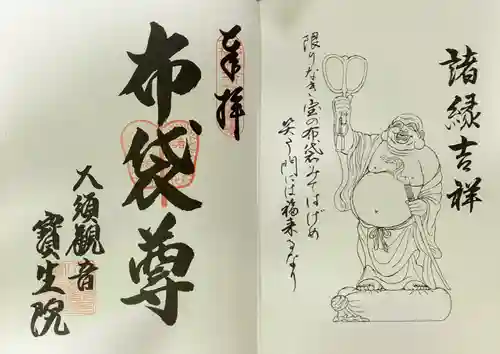 諸縁吉祥
限りなき宝の布袋みてはげめ
笑う門には福来るなり
奉拝
布袋尊
大須観音
寶生院